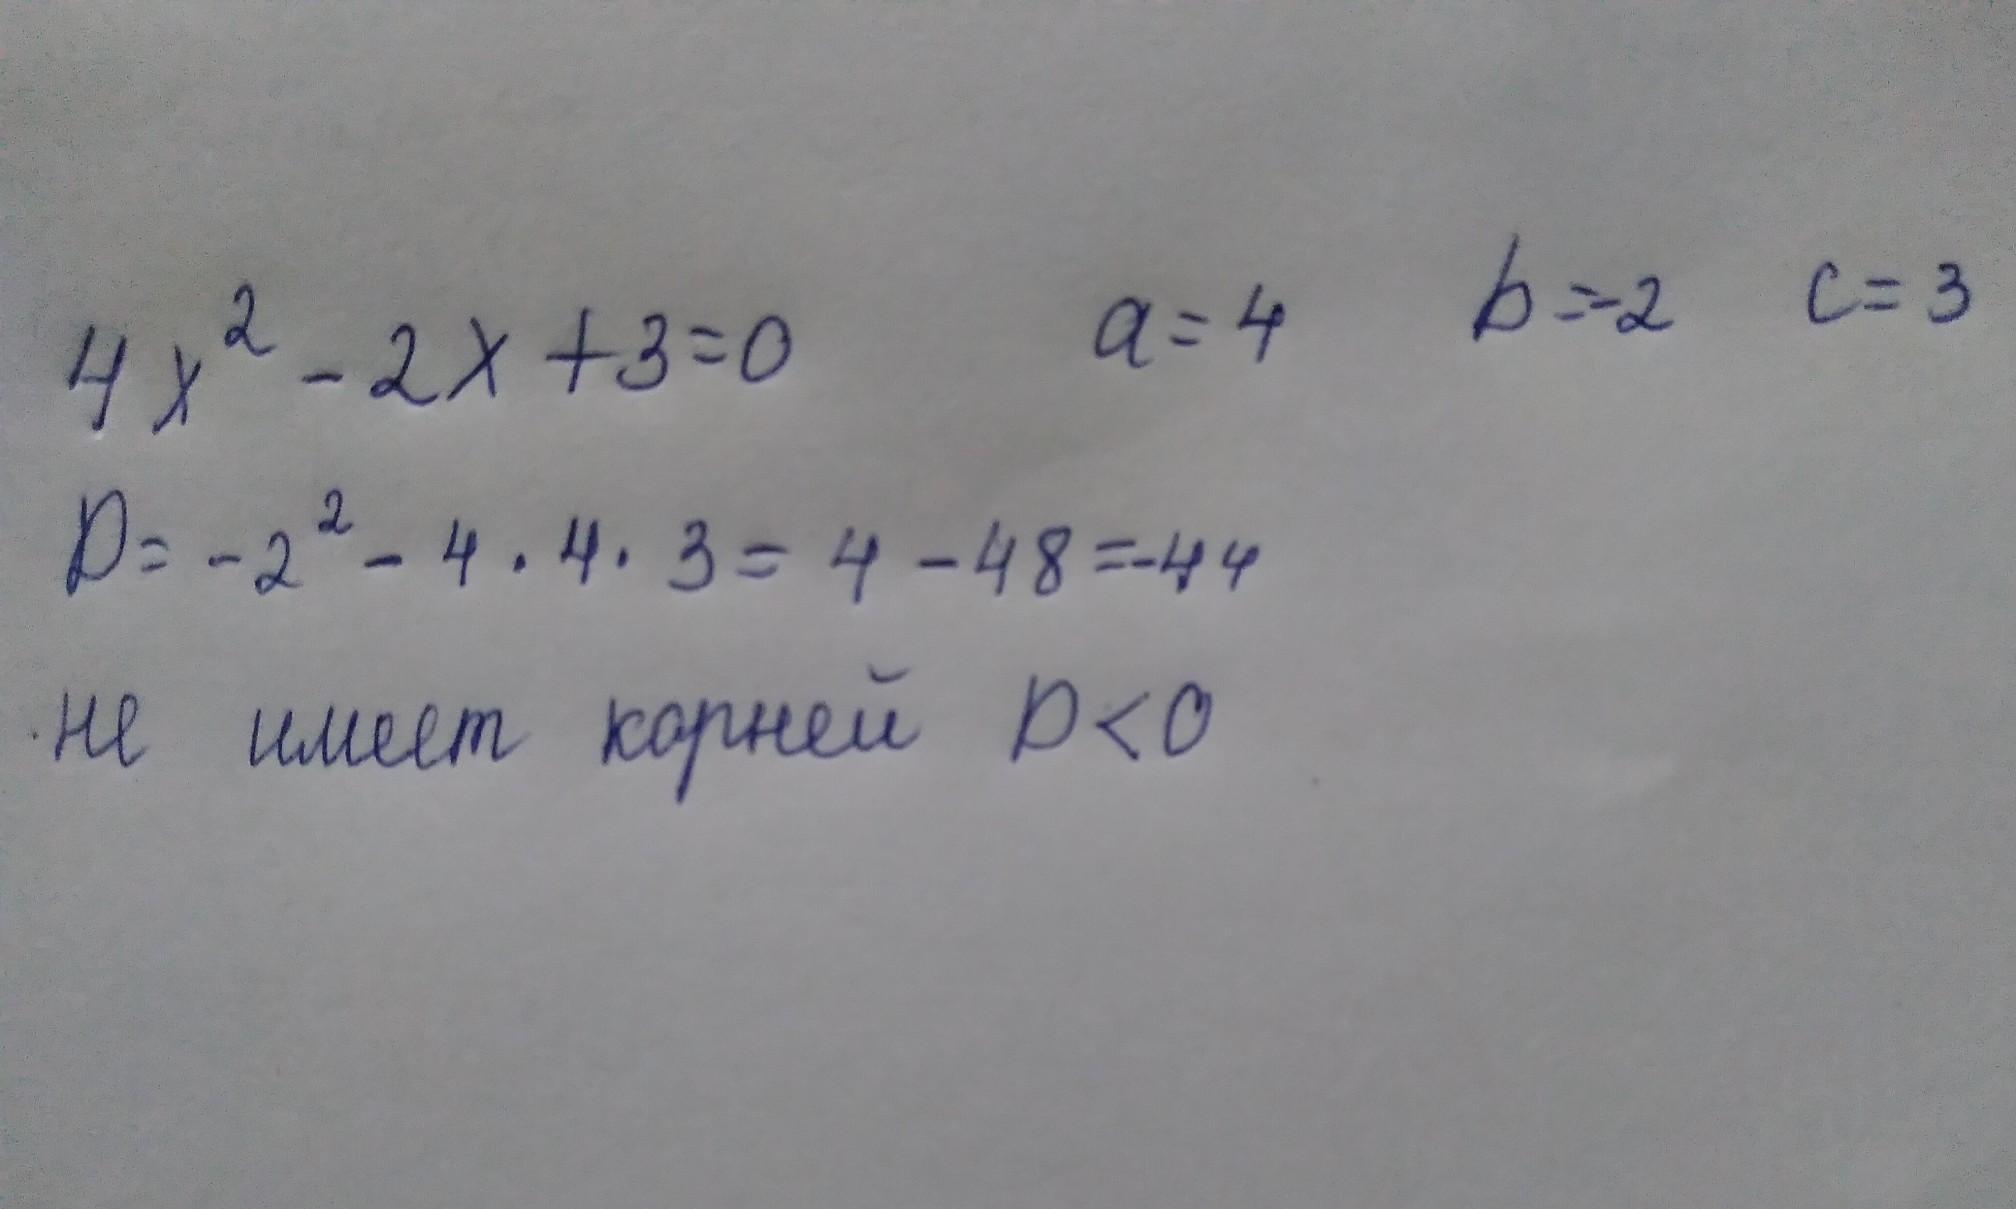 4x² - 2x + 3 = 0 a = 4 b = -2 c = 3
D = -2² - 4 · 4 · 3 = 4 - 48 = -44
не имеет корней D < 0